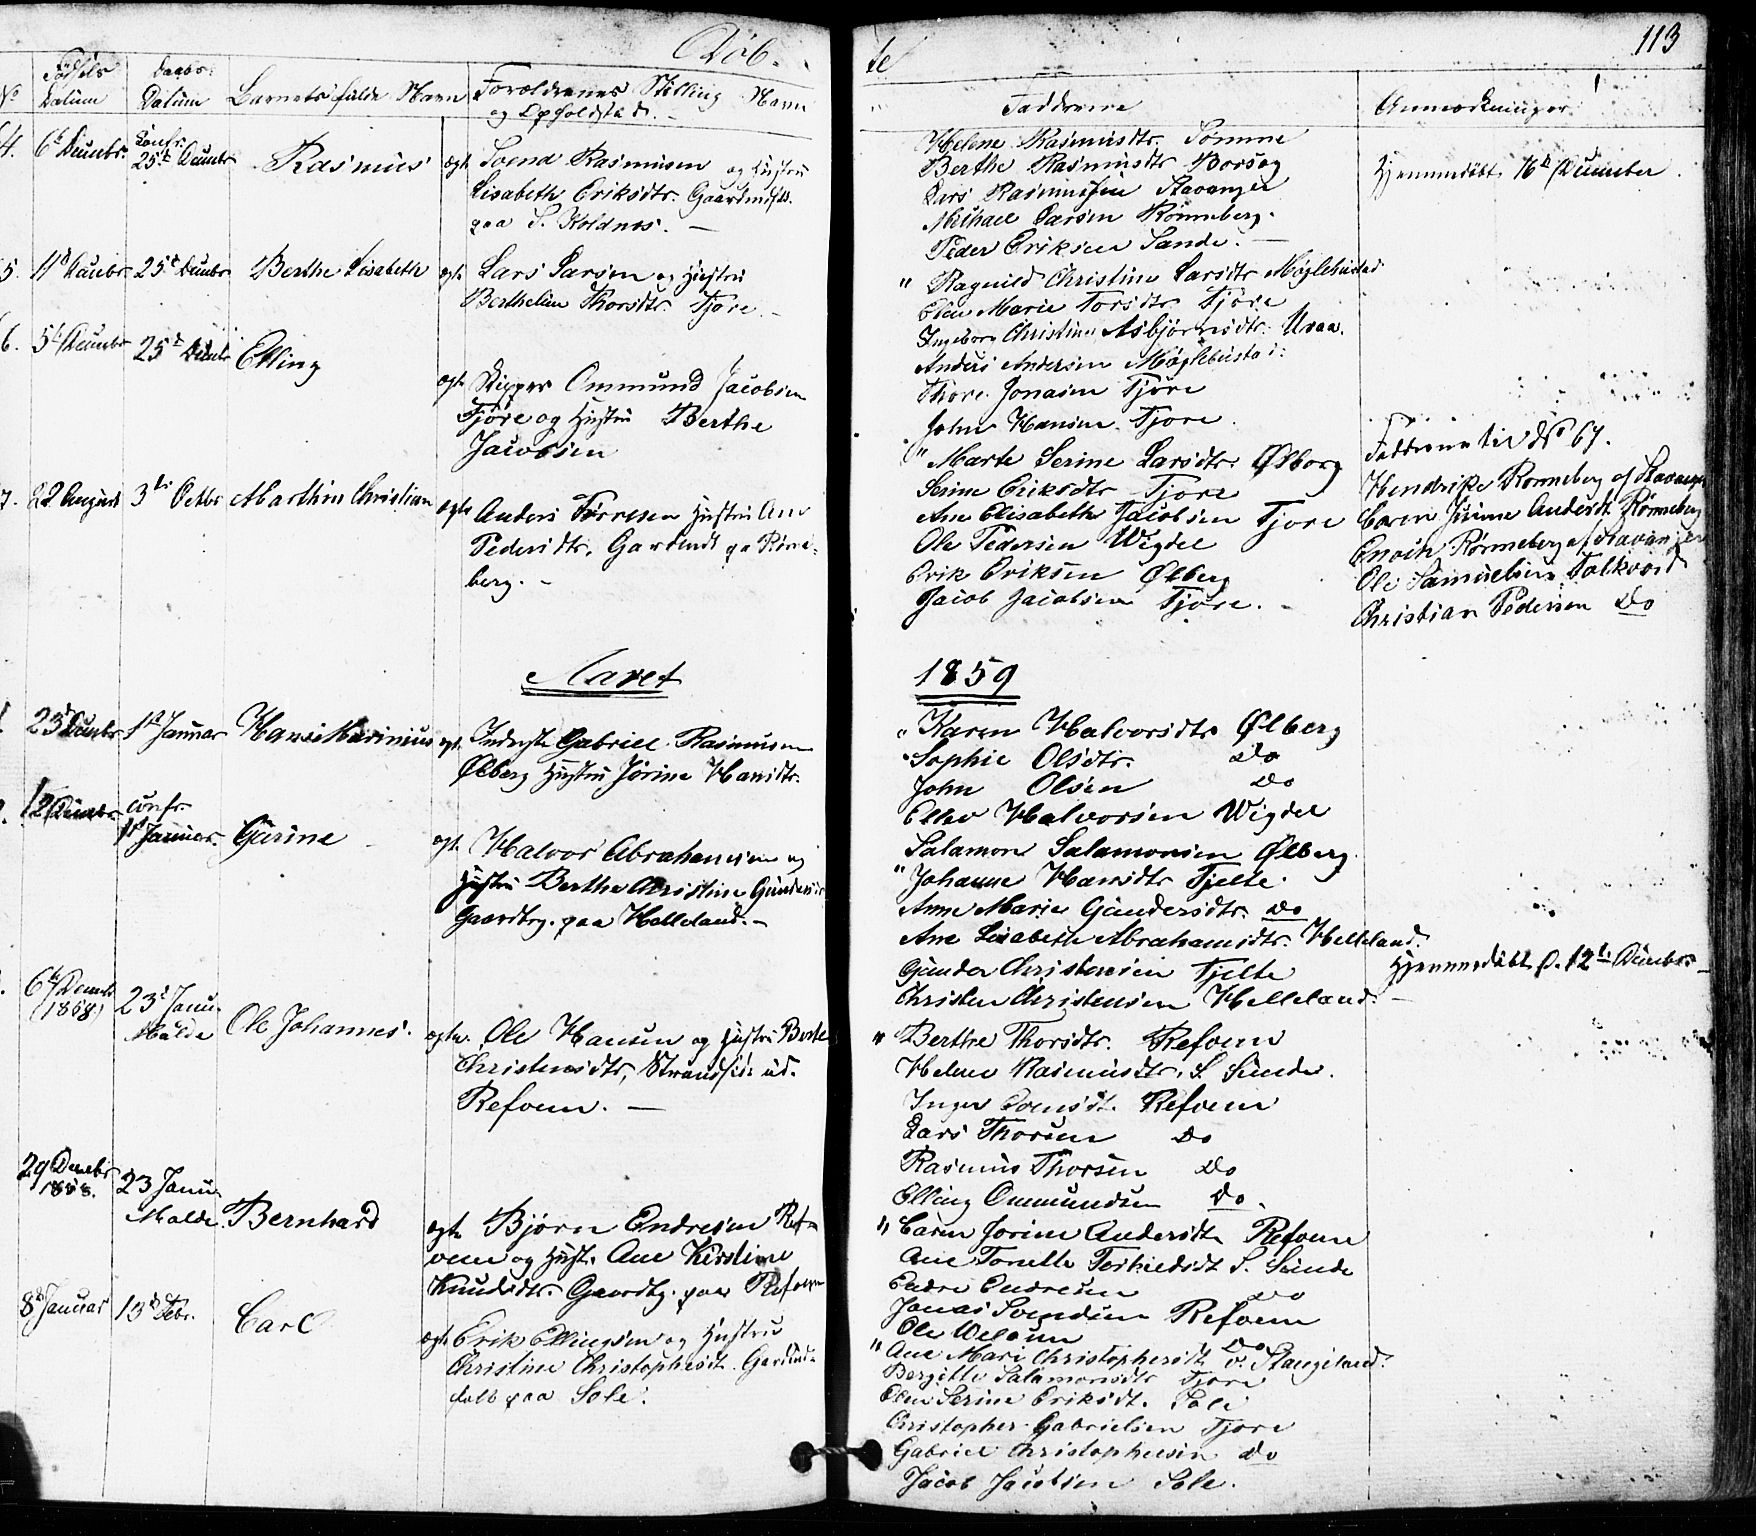 Døbte
113
No
Fødsels Datum
Daabs Datum
Barnets fulde Navn
Forældrenes Stilling Navn
og Opholdsted.
Faddrene
Anmærkninger
4. 6te Decembr. Confr. 25de Decembr Rasmus ægte Svend Rasmussen og Hustru
Lisabeth Eriksdtr. Gaardmfolk.
paa S. Koldnes. —
Helene Rasmusdtr. Sømme
Berthe Rasmusdtr. Børsøy
Lars Rasmussen Stavanger
Michael Larsen Rønneberg.
Peder Eriksen Sande. —
Hjemmedøbt 16de December.
5. 11te Decembr 25de Decembr Berthe Lisabeth ægte Lars Larsen og Hustru
Bertheline Thorsdtr. Tjore. —
" Ragnild Christine Larsdtr Møglebustad
Elen Marie Torsdtr. Tjore
Ingeborg Christine Asbjørnsdtr. Uraa.
Anders Andersen Møglebustad:
Thore Jonasen Tjore
John Hansen Tjore.
6. 5te Decembr 25de Decembr Elling ægte Skipper Ommund Jacobsen
Tjore og Hustru Berthe
Jacobsen
" Marte Serine Larsdtr. Ølberg
Serine Eriksdtr Tjore
Ane Elisabeth Jacobsen Tjore
Ole Pedersen Wigdel
Erik Eriksen Ølberg
Jacob Jacobsen Tjore. —
7. 22 August 3die Octbr Marthin Christian ægte Anders Tørresen Hustru Ane
Pedersdtr. Gaardmf paa Rønne-
berg. —
Faddrene til No 67.
Hendrike Rønneberg af Stavanger
Caren Serine Andersdt Rønneberg
Enoch Rønneberg af Stavanger
Ole Samuelsen Folkvord
Christian Pedersen Do
Aaret 1859
23de Decembr 1ste Januar Hans Marinius ægte Inderste Gabriel Rasmussen
Ølberg Hustru Jørine Hansdtr.
" Karen Halvorsdtr Ølberg
Sophie Olsdtr. Do
John Olsen Do
Ellev Halvorsen Wigdel
Salamon Salamonsen Ølberg.
12 Decembr confr. 1ste Januar. Gurine ægte Halvor Abrahamsen og
Hustru Berthe Christine Gundersdtr
Gaardbrg. paa Helleland. —
" Johanne Hansdtr Tjelte.
Anne Marie Gundersdtr. Do
Ane Lisabeth Abrahamsdtr. Helleland.
Gunder Christensen Tjelte
Christen Christensen Helleland. —
Hjemmedøbt d. 12te Decembr —
6te Decembr (1858) 23de Janu. Malde Ole Johannes. ægte. Ole Hansen og Hustru Berte
Christensdtr, Strandsid. ud.
Refvem. —
" Berthe Thorsdtr. Refvem
Helene Rasmusdtr. S. Sunde.
Inger Svensdt. Refvem
Lars Thorsen Do
Rasmus Thorsen Do
Elling Ommundsen Do.
29 Decembr 1858. 23 Janu. Malde Bernhard ægte Bjørn Endresen Ref-
vem og Hust. Ane Kirstine
Knudsdtr. Gaardbg. paa Refvem
" Caren Jorine Andersdtr Refvem
Ane Tonette Torkiedsdt S. Sunde
Endre Endresen Do
Jonas Svendsen Refvem
Ole Do
8de Januar 13de Febr. Carl ægte Erik Ellingsen og Hustru
Christine Christophersdt. Gardmd-
folk paa Sole.
" Ane Mari Christophersdt Stangeland.
Bergitte Salamonsdtr Tjore
Elen Serine Eriksdt. Sole
Christopher Gabrielsen Tjore
Gabriel Christophersen Do
Jacob Jacobsen Sole.